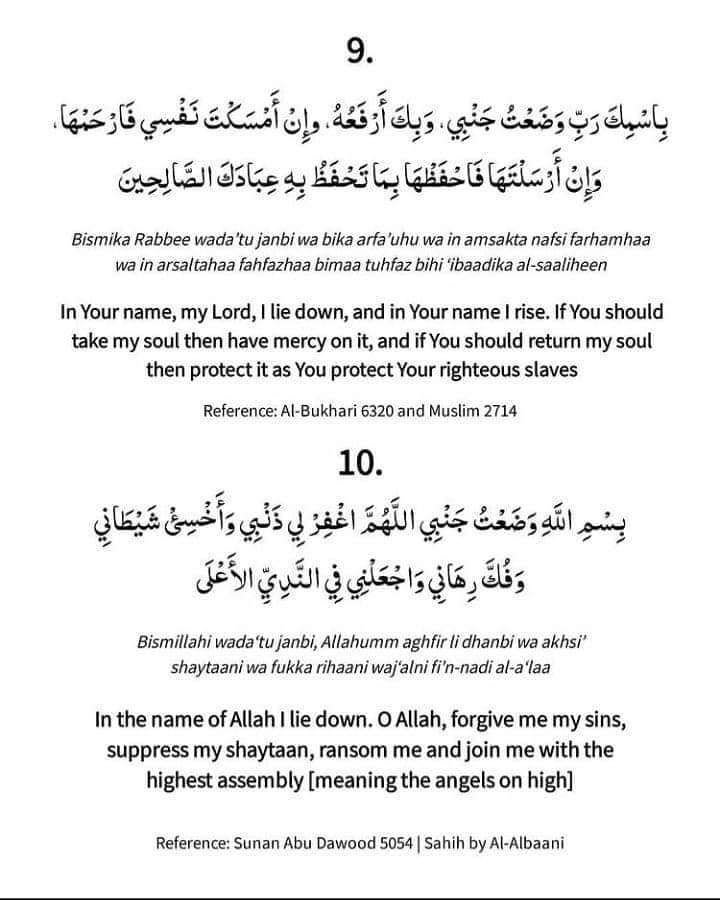 9.
بِاسْمِكَ رَبِّ وَضَعْتُ جَنْبِي، وَبِكَ أَرْفَعُهُ، وإِنْ أَمْسَكْتَ نَفْسِي فَارْحَمْهَا،
وَإِنْ أَرْسَلْتَهَا فَاحْفَظْهَا بِمَا تَحْفَظُ بِهِ عِبَادَكَ الصَّالِحِينَ
Bismika Rabbee wada’tu janbi wa bika arfa’uhu wa in amsakta nafsi farhamhaa
wa in arsaltahaa fahfazhaa bimaa tuhfaz bihi ‘ibaadika al-saaliheen
In Your name, my Lord, I lie down, and in Your name I rise. If You should
take my soul then have mercy on it, and if You should return my soul
then protect it as You protect Your righteous slaves
Reference: Al-Bukhari 6320 and Muslim 2714
10.
بِسْمِ اللَّهِ وَضَعْتُ جَنْبِي اللَّهُمَّ اغْفِرْ لِي ذَنْبِي وَأَخْسِئْ شَيْطَانِي
وَفُكَّ رِهَانِي وَاجْعَلْنِي فِي النَّدِيِّ الأَعْلَى
Bismillahi wada‘tu janbi, Allahumm aghfir li dhanbi wa akhsi’
shaytaani wa fukka rihaani waj‘alni fi’n-nadi al-a‘laa
In the name of Allah I lie down. O Allah, forgive me my sins,
suppress my shaytaan, ransom me and join me with the
highest assembly [meaning the angels on high]
Reference: Sunan Abu Dawood 5054 | Sahih by Al-Albaani